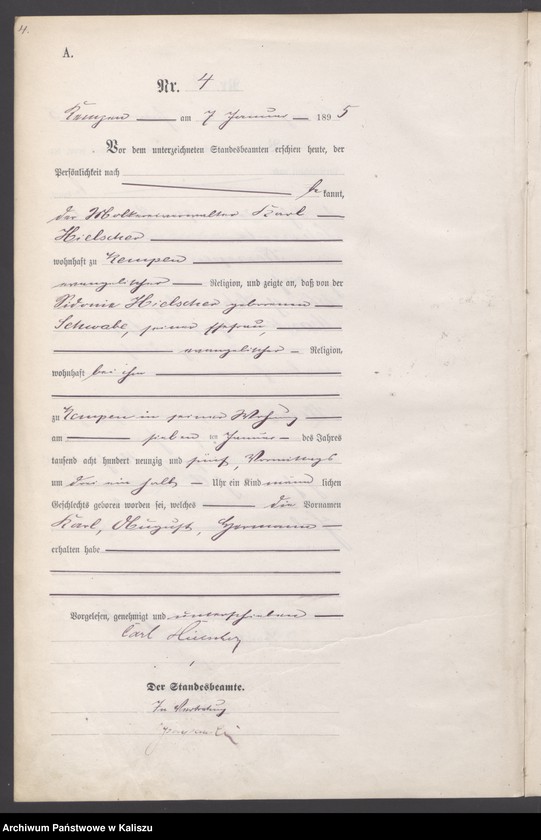 4.
A.
Nr. 4
Kempen am 7 Januar 1895
Vor dem unterzeichneten Standesbeamten erschien heute, der
Persönlichkeit nach
be kannt,
der Molkereiverwalter Karl
Hielscher
wohnhaft zu Kempen
evangelischer Religion, und zeigte an, daß von der
Sidonie Hielscher geborenen
Schwabe, seiner Ehefrau,
evangelischer Religion,
wohnhaft bei ihm
zu Kempen in seiner Wohnung
am sieben ten Januar des Jahres
tausend acht hundert neunzig und fünf, Vormittags
um drei ein halb Uhr ein Kind männ lichen
Geschlechts geboren worden sei, welches die Vornamen
Karl, August, Hermann
erhalten habe
Vorgelesen, genehmigt und unterschrieben
Carl Hielscher
Der Standesbeamte.
In Vertretung
Archiwum Państwowe w Kaliszu